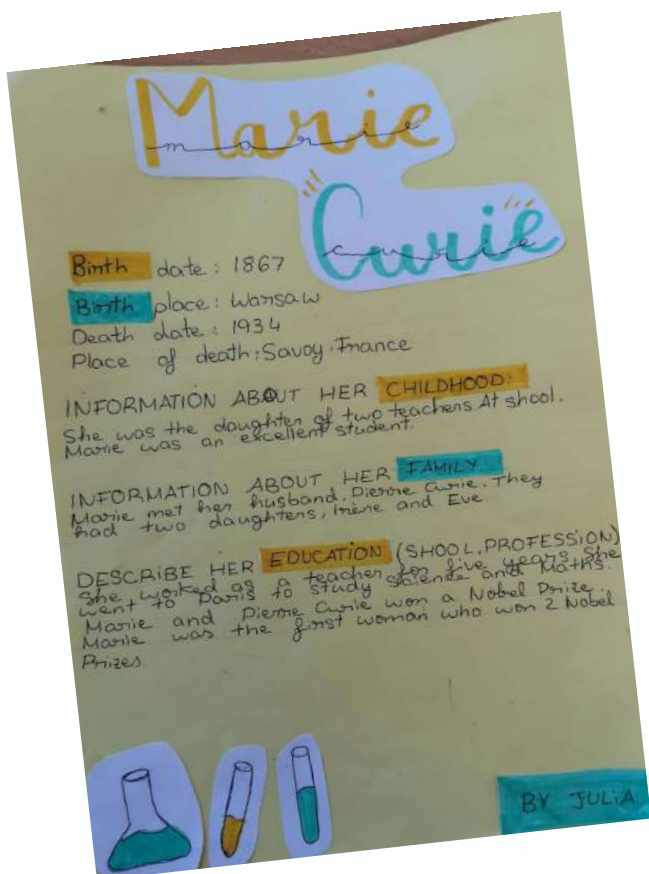 Marie
marie
Curie
curie
Birth date: 1867
Birth place: Warsaw
Death date: 1934
Place of death: Savoy. France
INFORMATION ABOUT HER CHILDHOOD:
She was the daughter of two teachers At shool.
Marie was an excellent student.
INFORMATION ABOUT HER FAMILY
Marie met her husband. Pierre Curie. They
had two daughters, Irène and Eve
DESCRIBE HER EDUCATION (SHOOL, PROFESSION)
She worked as a teacher for five years She
went to Paris to study Science and Maths.
Marie and Pierre Curie won a Nobel Prize.
Marie was the first woman who won 2 Nobel
Prizes
BY JULIA